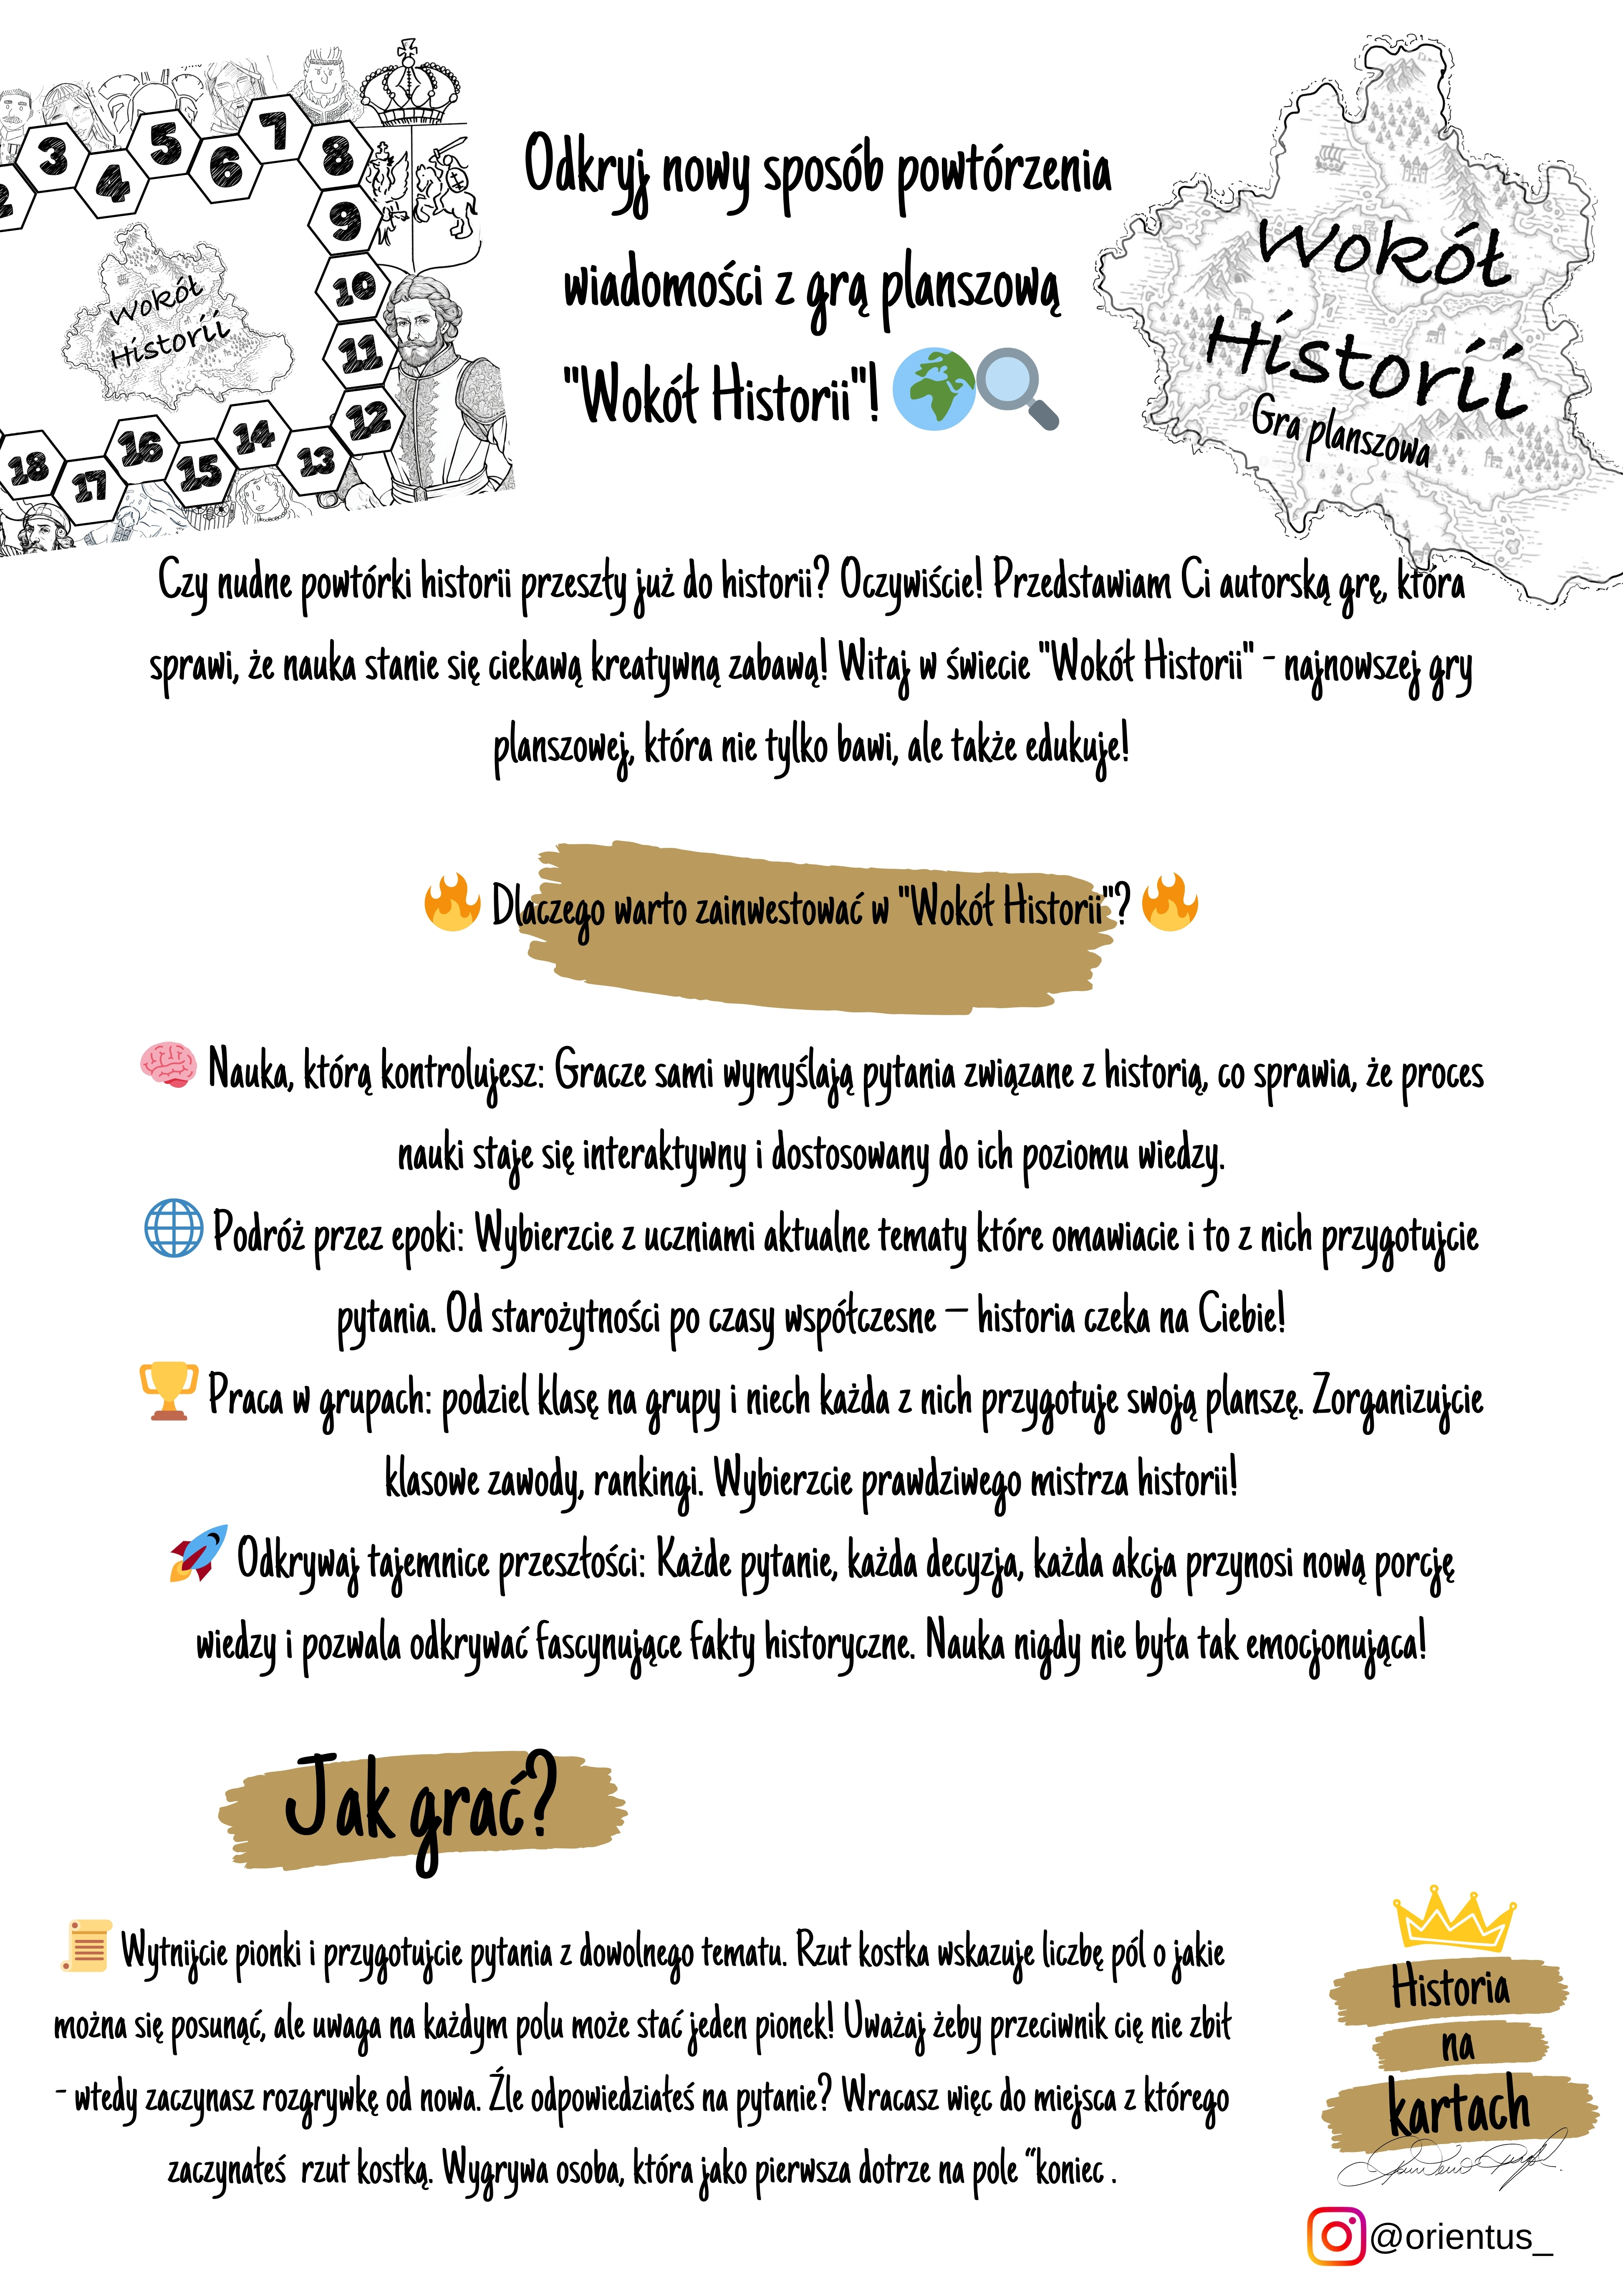 2
3
4
5
6
7
8
9
10
11
12
13
14
15
16
17
18
Wokół
Historii
Odkryj nowy sposób powtórzenia
wiadomości z grą planszową
"Wokół Historii"!
Wokół
Historii
Gra planszowa
Czy nudne powtórki historii przeszły już do historii? Oczywiście! Przedstawiam Ci autorską grę, która
sprawi, że nauka stanie się ciekawą kreatywną zabawą! Witaj w świecie "Wokół Historii" - najnowszej gry
planszowej, która nie tylko bawi, ale także edukuje!
Dlaczego warto zainwestować w "Wokół Historii"?
Nauka, którą kontrolujesz: Gracze sami wymyślają pytania związane z historią, co sprawia, że proces
nauki staje się interaktywny i dostosowany do ich poziomu wiedzy.
Podróż przez epoki: Wybierzcie z uczniami aktualne tematy które omawiacie i to z nich przygotujcie
pytania. Od starożytności po czasy współczesne – historia czeka na Ciebie!
Praca w grupach: podziel klasę na grupy i niech każda z nich przygotuje swoją planszę. Zorganizujcie
klasowe zawody, rankingi. Wybierzcie prawdziwego mistrza historii!
Odkrywaj tajemnice przeszłości: Każde pytanie, każda decyzja, każda akcja przynosi nową porcję
wiedzy i pozwala odkrywać fascynujące fakty historyczne. Nauka nigdy nie była tak emocjonująca!
Jak grać?
Wytnijcie pionki i przygotujcie pytania z dowolnego tematu. Rzut kostka wskazuje liczbę pól o jakie
można się posunąć, ale uwaga na każdym polu może stać jeden pionek! Uważaj żeby przeciwnik cię nie zbił
- wtedy zaczynasz rozgrywkę od nowa. Źle odpowiedziałeś na pytanie? Wracasz więc do miejsca z którego
zaczynałeś rzut kostką. Wygrywa osoba, która jako pierwsza dotrze na pole “koniec .
Historia
na
kartach
@orientus_